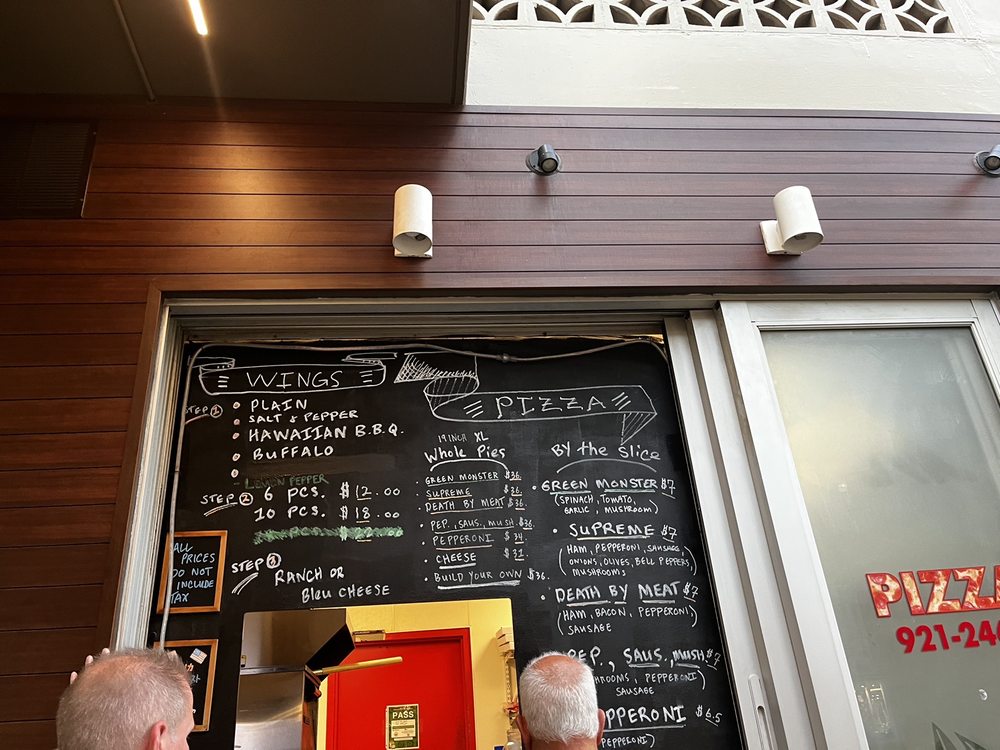 WINGS
STEP 1
PLAIN
SALT & PEPPER
HAWAIIAN B.B.Q.
BUFFALO
LEMON PEPPER
STEP 2
6 PCS. $12.00
10 PCS. $18.00
STEP 3
RANCH OR
BLEU CHEESE
ALL
PRICES
DO NOT
INCLUDE
TAX
PIZZA
19 INCH XL
Whole Pies
GREEN MONSTER $36.
SUPREME $36.
DEATH BY MEAT $36.
PEP., SAUS., MUSH. $36.
PEPPERONI $34.
CHEESE $32.
BUILD YOUR OWN $36.
By the slice
GREEN MONSTER $7
(SPINACH, TOMATO,
GARLIC, MUSHROOM)
SUPREME $7
(HAM, PEPPERONI, SAUSAGE
ONIONS, OLIVES, BELL PEPPERS
MUSHROOMS)
DEATH BY MEAT $7
(HAM, BACON, PEPPERONI)
SAUSAGE
PEP., SAUS., MUSH $7
SHROOMS, PEPPERONI)
SAUSAGE
PPERONI $6.5
PEPPERONI)
PASS
PIZZA
921-24